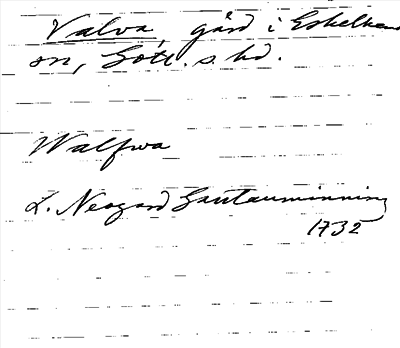 Valva, gård i Eskelhem
sn, Gotl. s. hd.
Walfwa
L. Neogard Gautauminning
1732